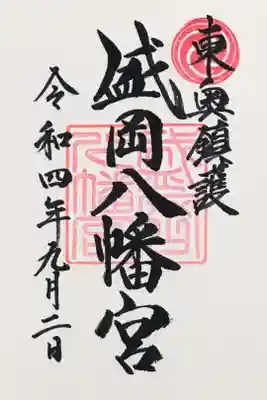 東奥願護
盛岡八幡宮
令和四年九月二日